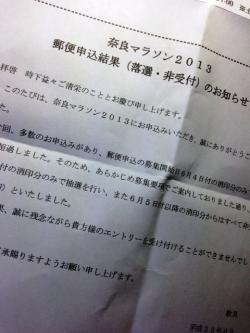 奈良マラソン2013
郵便申込結果(落選・非受付)のお知らせ
拝啓 時下益々ご清栄のこととお慶び申し上げます。
このたびは、奈良マラソン2013にお申込みいただき、誠にありがとうご
た。
回、多数のお申込みがあり、郵便申込の募集開始日6月4日付の消印のみ
超過しました。そのため、あらかじめ募集要項でご案内しておりました通り、
付の消印分のみで抽選を行い、また6月5日以降の消印分からはすべて非
)といたしました。
果、誠に残念ながら貴方様のエントリーを受け付けることができませんでし
了承賜りますようお願い申し上げます。
敬具
平成25年6月